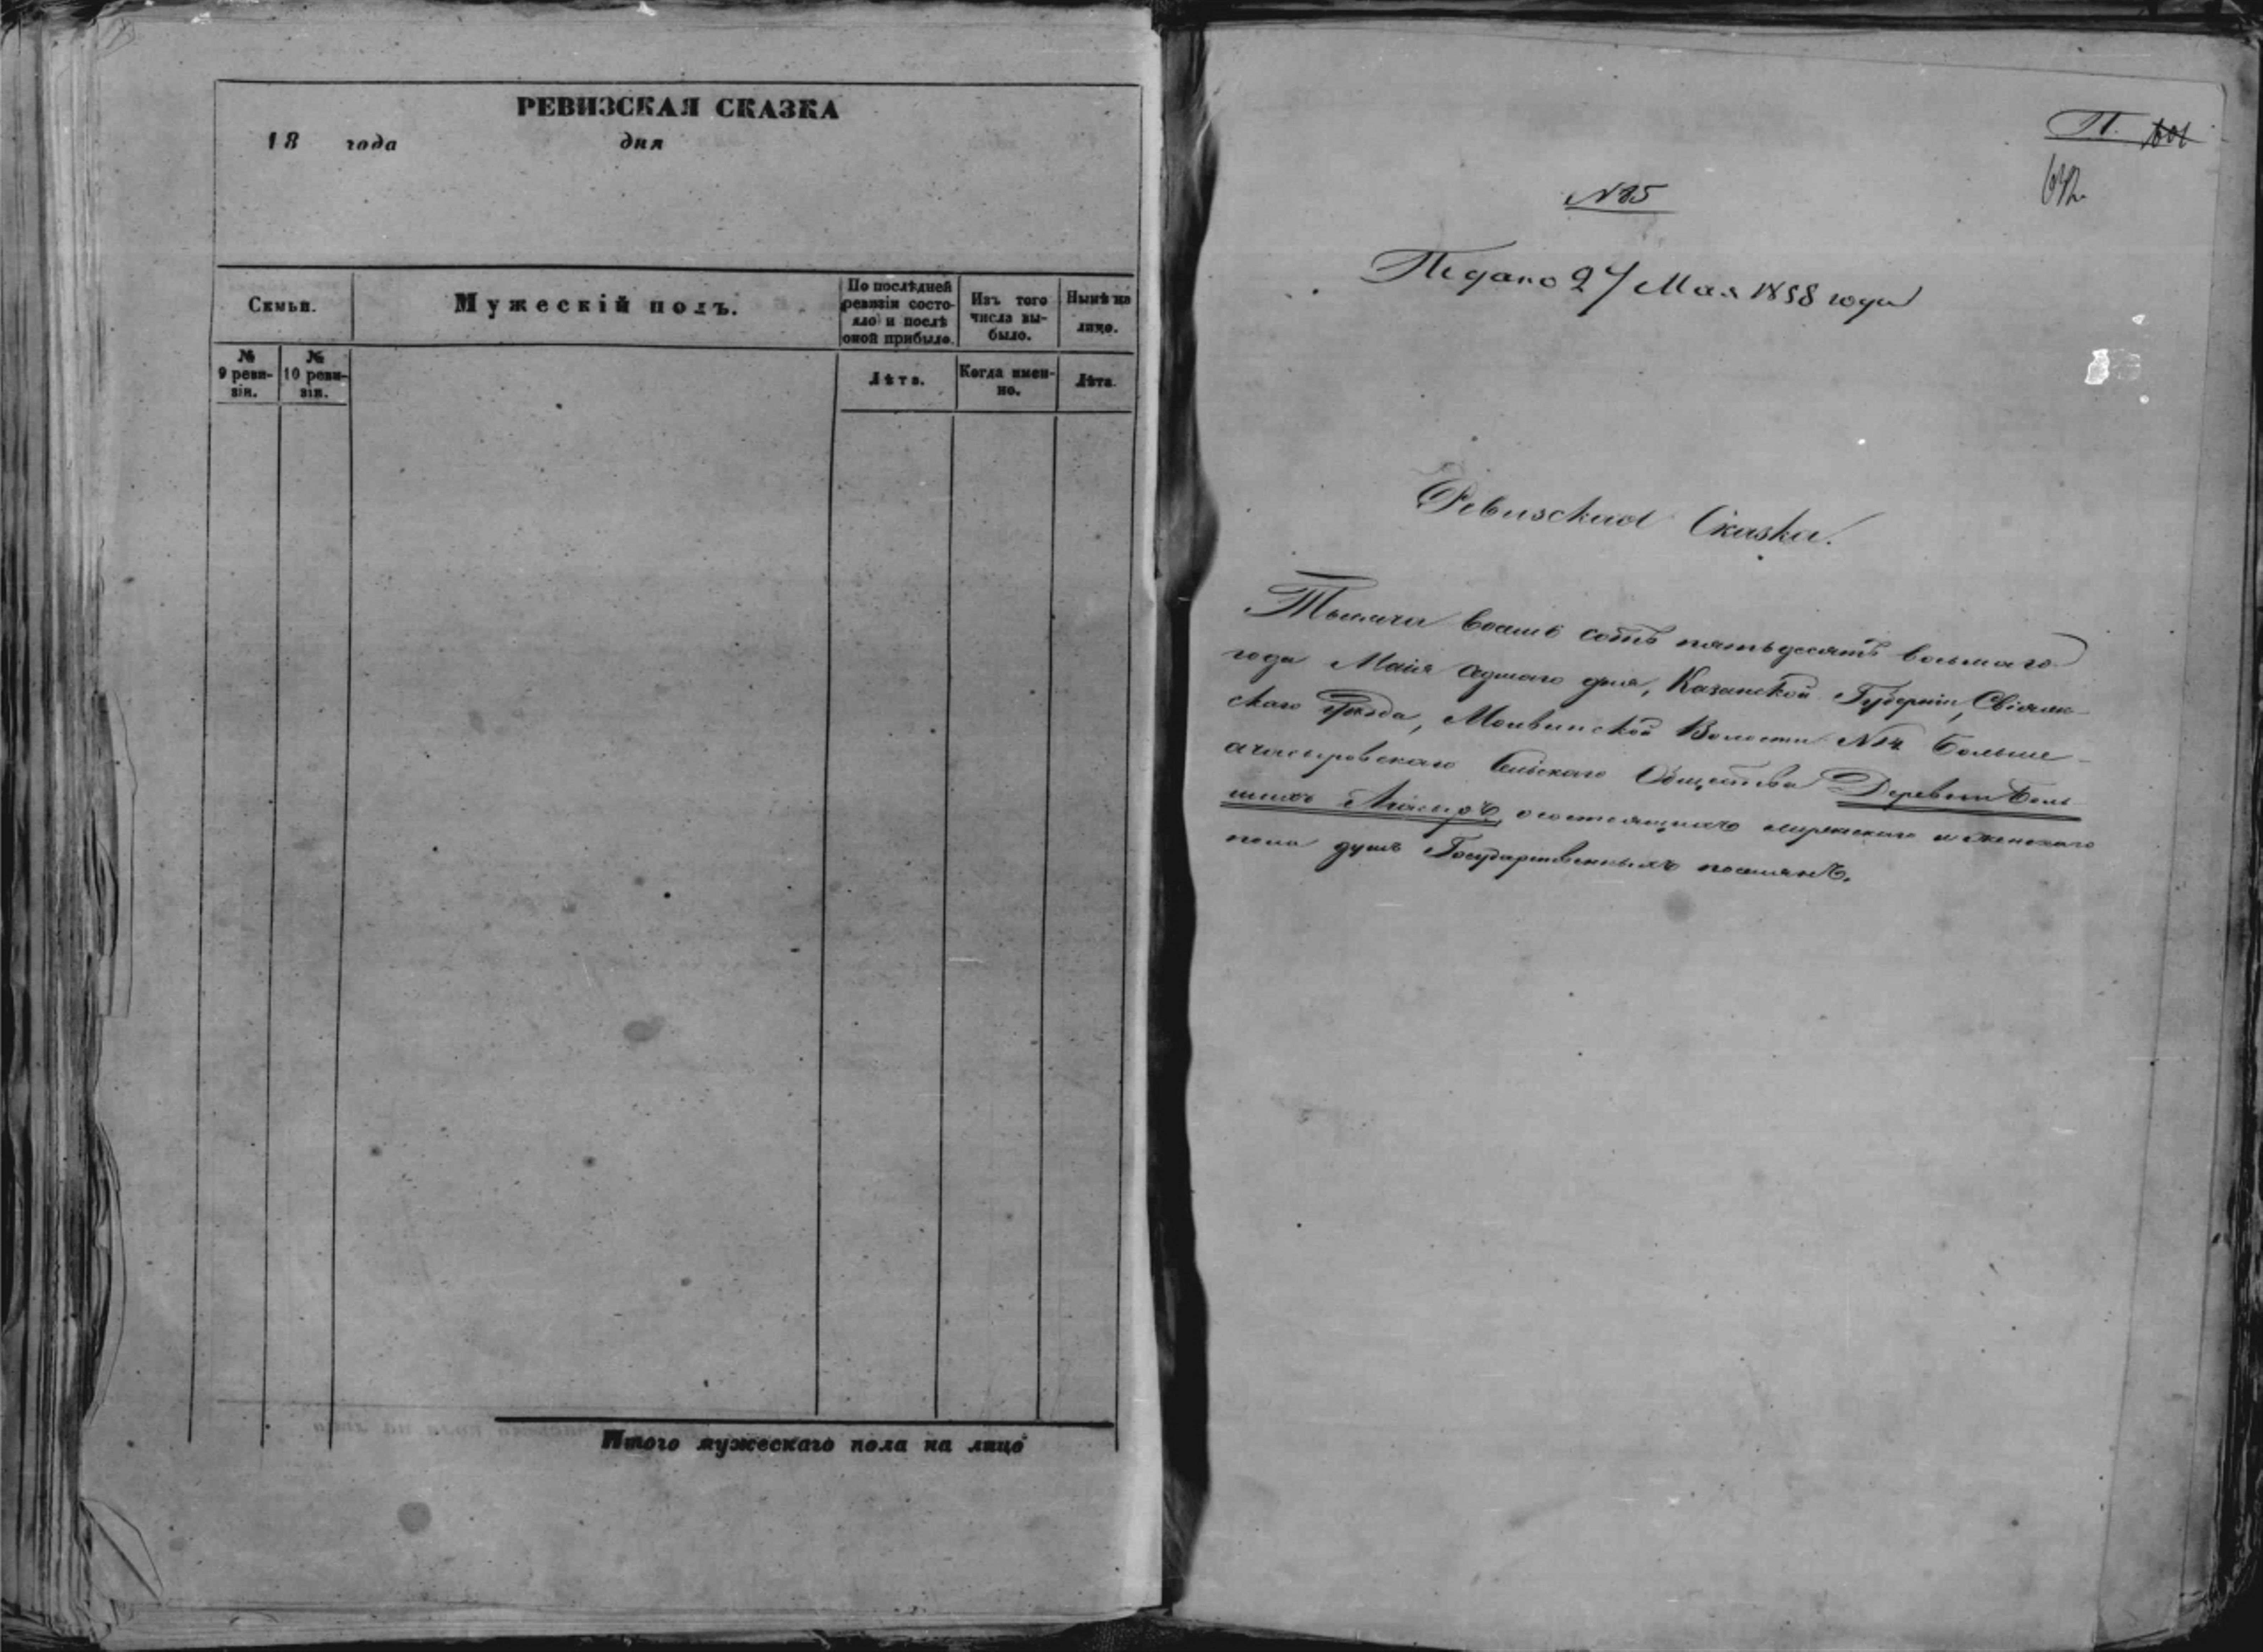 РЕВИЗСКАЯ СКАЗКА
18 года дня
Семьи.
Мужескій полъ.
По послѣдней
ревизіи состо-
яло и послѣ
оной прибыло.
Изъ того
числа вы-
было.
Нынѣ на
лицо.
№
9 реви-
зіи.
№
10 реви-
зіи.
Лѣта.
Когда имен-
но.
Лѣта.
Итого мужескаго пола на лицо
П.
№ 85
Подано 27 Мая 1858 года
Ревизская Сказка.
Тысяча восемь сотъ пятьдесятъ восьмаго
года Маія седмаго дня, Казанской Губерніи, Свіяж-
скаго Уѣзда, Волости Больше-
ачасыровскаго Сельскаго Общества Деревни Боль
шихъ Ачасыръ, о состоящихъ мужескаго и женскаго
пола душъ Государственныхъ поселянъ.